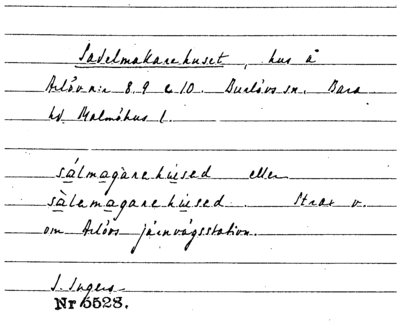 Sadelmakarehuset, hus å
Arlöv n:r 8, 9 & 10. Burlövs sn. Bara
hd. Malmöhus l.
sálmagarehused eller
sàlamagarehused. Strax v.
om Arlövs järnvägsstation.
I. Ingers
Nr 5528.